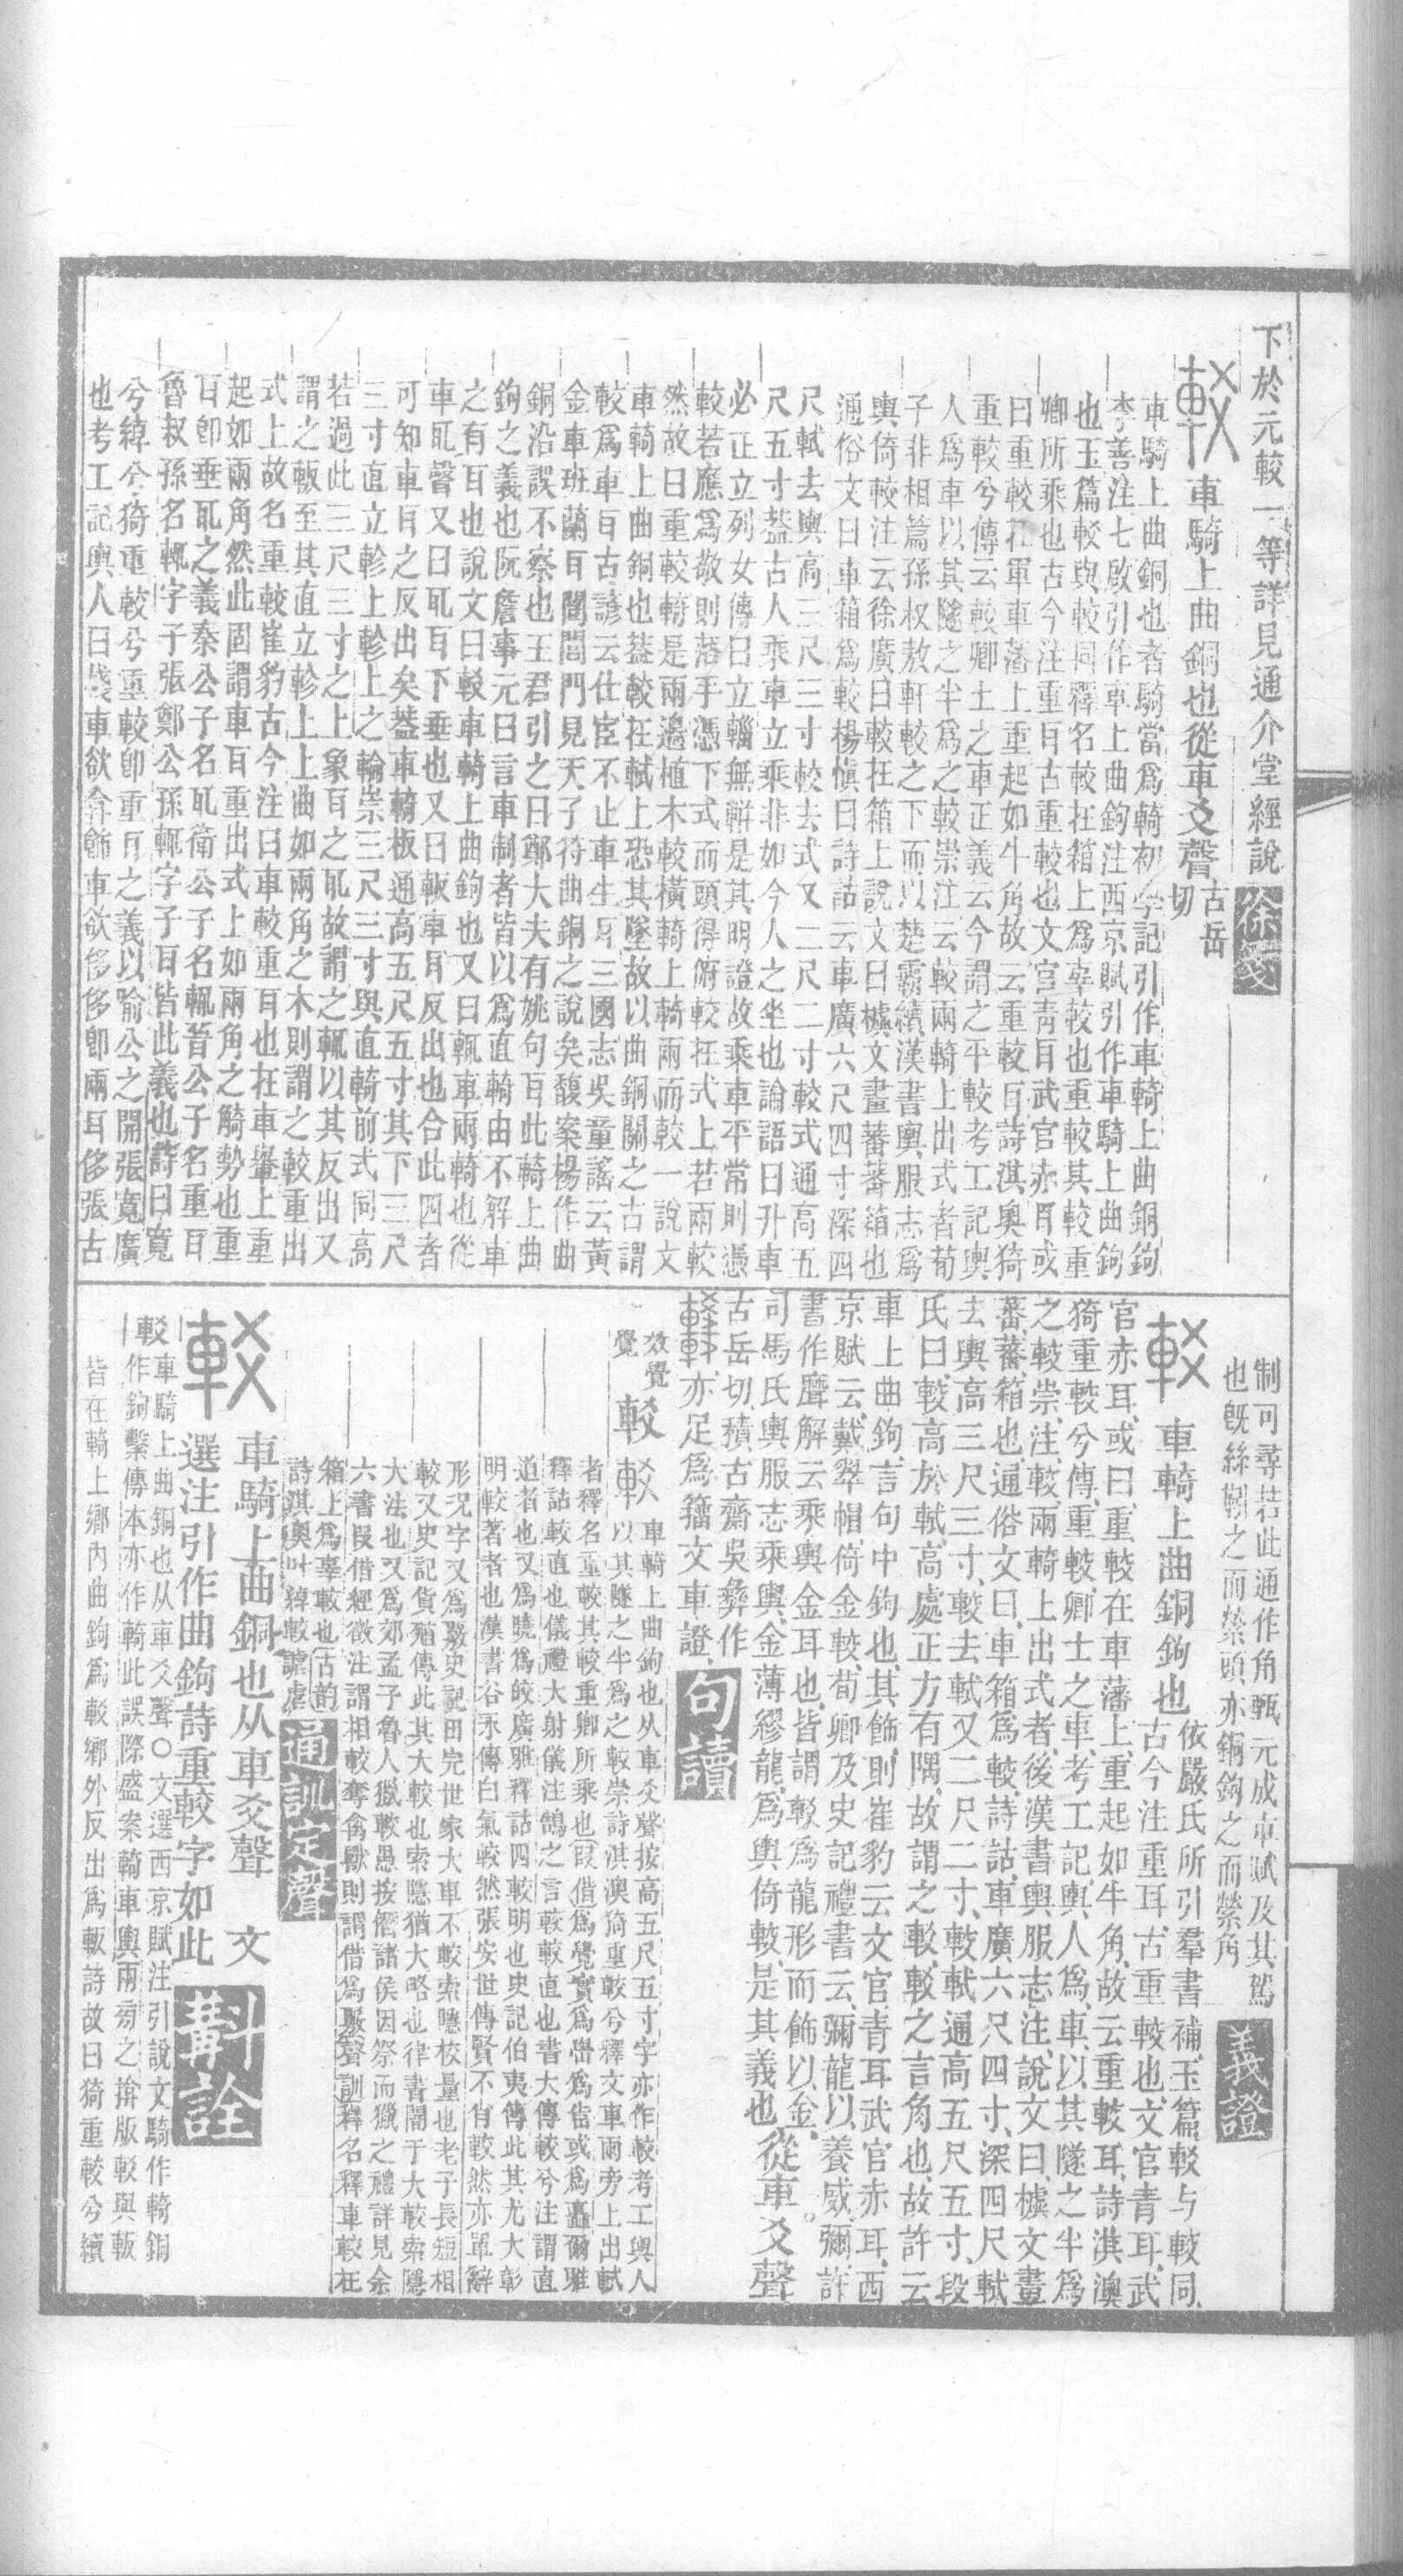 下於元較一等詳見通介堂經說徐箋
車騎上曲銅也從車爻聲古岳切
車騎上曲銅也者騎當爲輢初學記引作車輢上曲銅鉤
李善注七啟引作車上曲鉤注西京賦引作車騎上曲鉤
也玉篇較與較同釋名較在箱上爲辜較也重較其較重
卿所乘也古今注重耳古重較也文官青耳武官赤耳或
曰重較在軍車藩上重起如牛角故云重較耳詩淇奧猗
重較兮傳云較卿士之車正義云今謂之平較考工記輿
人爲車以其隧之半爲之較崇注云較兩輢上出式者荀
子非相篇孫叔敖軒較之下而以楚霸續漢書輿服志爲
輿倚較注云徐廣曰較在箱上說文曰𨏮文畫蕃蕃箱也
通俗文曰車箱爲較楊愼曰詩詁云車廣六尺四寸深四
尺軾去輿高三尺三寸較去式又二尺二寸較式通高五
尺五寸葢古人乘車立乘非如今人之坐也論語曰升車
必正立列女傳曰立輜無輧是其明證故乘車平常則憑
較若應爲敬則落手憑下式而頭得俯較在式上若兩較
然故曰重較輢是兩邊植木較橫輢上輢兩而較一說文
車輢上曲銅也葢較在軾上恐其墜故以曲銅關之古謂
較爲車耳古諺云仕宦不止車生耳三國志吳童謠云黃
金車班蘭耳闓閶門見天子符曲銅之說矣馥案楊作曲
銅沿誤不察也王君引之曰鄭大夫有姚句耳此輢上曲
鉤之義也阮詹事元曰言車制者皆以爲直輢由不解車
之有耳也說文曰較車輢上曲鉤也又曰輒車兩輢也從
車耴聲又曰耴耳下垂也又曰軓車耳反出也合此四者
可知車耳之反出矣葢車輢板通高五尺五寸其下三尺
三寸直立軫上軫上之輪崇三尺三寸與直輢前式同高
若過此三尺三寸之上象耳之耴故謂之輒以其反出又
謂之軓至其直立軫上上曲如兩角之木則謂之較重出
式上故名重較崔豹古今注曰車較重耳也在車轝上重
起如兩角然此固謂車耳重出式上如兩角之觭勢也重
耳卽垂耴之義秦公子名耴衛公子名輒晉公子名重耳
魯叔孫名輒字子張鄭公孫輒字子耳皆此義也詩曰寬
兮綽兮猗重較兮重較卽重耳之義以喻公之開張寬廣
也考工記輿人曰棧車欲弇飾車欲侈侈卽兩耳侈張古
制可尋若此通作角甄元成車賦及其駕
也旣絲靷之而縈頭亦銅鉤之而縈角義證
車輢上曲銅鉤也依嚴氏所引羣書補玉篇較与較同
古今注重耳古重較也文官青耳武
官赤耳或曰重較在車藩上重起如牛角故云重較耳詩淇澳
猗重較兮傳重較卿士之車考工記輿人爲車以其隧之半爲
之較崇注較兩輢上出式者後漢書輿服志注說文曰𨏮文畫
蕃蕃箱也通俗文曰車箱爲較詩詁車廣六尺四寸深四尺軾
去輿高三尺三寸較去軾又二尺二寸較軾通高五尺五寸段
氏曰較高於軾高處正方有隅故謂之較較之言角也故許云
車上曲鉤言句中鉤也其飾則崔豹云文官青耳武官赤耳西
京賦云戴翠帽倚金較荀卿及史記禮書云彌龍以養威彌許
書作䡢解云乘輿金耳也皆謂較爲龍形而飾以金
司馬氏輿服志乘輿金薄繆龍爲輿倚較是其義也從車爻聲
古岳切積古齋吳彝作
亦足爲籀文車證句讀
效覺 覺
較車輢上曲鉤也从車爻聲按高五尺五寸字亦作較考工輿人
以其隧之半爲之較崇詩淇澳猗重較兮釋文車兩旁上出軾
者釋名重較其較重卿所乘也叚借爲覺實爲嚳爲告或爲矗爾雅
釋詁較直也儀禮大射儀注鵠之言較較直也書大傳較兮注謂直
道者也又爲曉爲皎廣雅釋詁四較明也史記伯夷傳此其尤大彰
明較著者也漢書谷永傳白氣較然張安世傳賢不肖較然亦單辭
形況字又爲覈史記田完世家大車不較索隱校量也老子長短相
較又史記貨殖傳此其大較也索隱猶大略也律書闇于大較索隱
大法也又爲郊孟子魯人獵較愚按僭諸侯因祭而獵之禮詳見余
六書叚借經徵注謂相較奪禽獸則謂借爲覈聲訓釋名釋車較在
箱上爲辜較也古韵
詩淇奧叶綽較謔虐通訓定聲
車騎上曲銅也从車爻聲 文
選注引作曲鉤詩重較字如此斠詮
車騎上曲銅也从車爻聲〇文選西京賦注引說文騎作輢銅
作鉤繫傳本亦作輢此誤際盛案輢車輿兩旁之揜版較與軓
皆在輢上鄉內曲鉤爲較鄉外反出爲軓詩故曰猗重較兮續